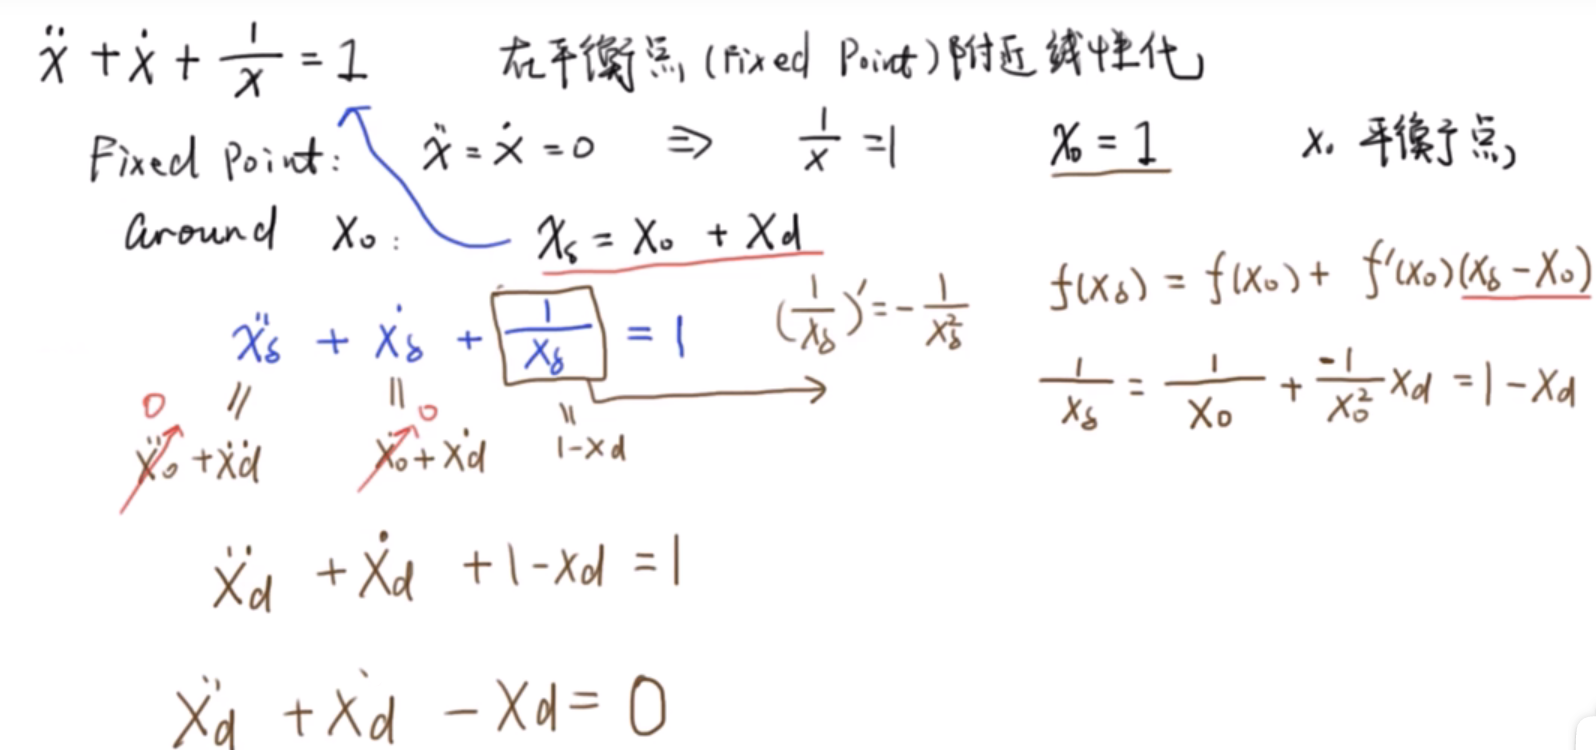 ẍ + ẋ + 1/x = 1 在平衡点 (Fixed Point) 附近线性化
Fixed Point: ẍ = ẋ = 0 ⇒ 1/x = 1 x₀ = 1 x₀ 平衡点
around x₀: x_δ = x₀ + x_d
f(x_δ) = f(x₀) + f'(x₀)(x_δ - x₀)
ẍ_δ + ẋ_δ + 1/x_δ = 1 (1/x_δ)' = - 1/x_δ²
1/x_δ = 1/x₀ + -1/x₀² x_d = 1 - x_d
0 0
ẍ₀ + ẍ_d ẋ₀ + ẋ_d 1 - x_d
ẍ_d + ẋ_d + 1 - x_d = 1
ẍ_d + ẋ_d - x_d = 0